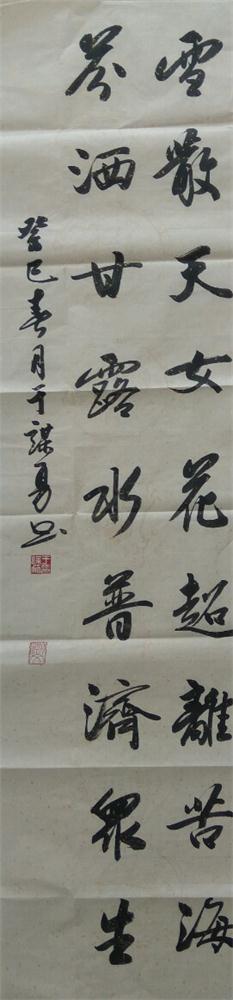 雪散天女花超離苦海
芬洒甘露水普濟眾生
癸巳春月于謀勇书